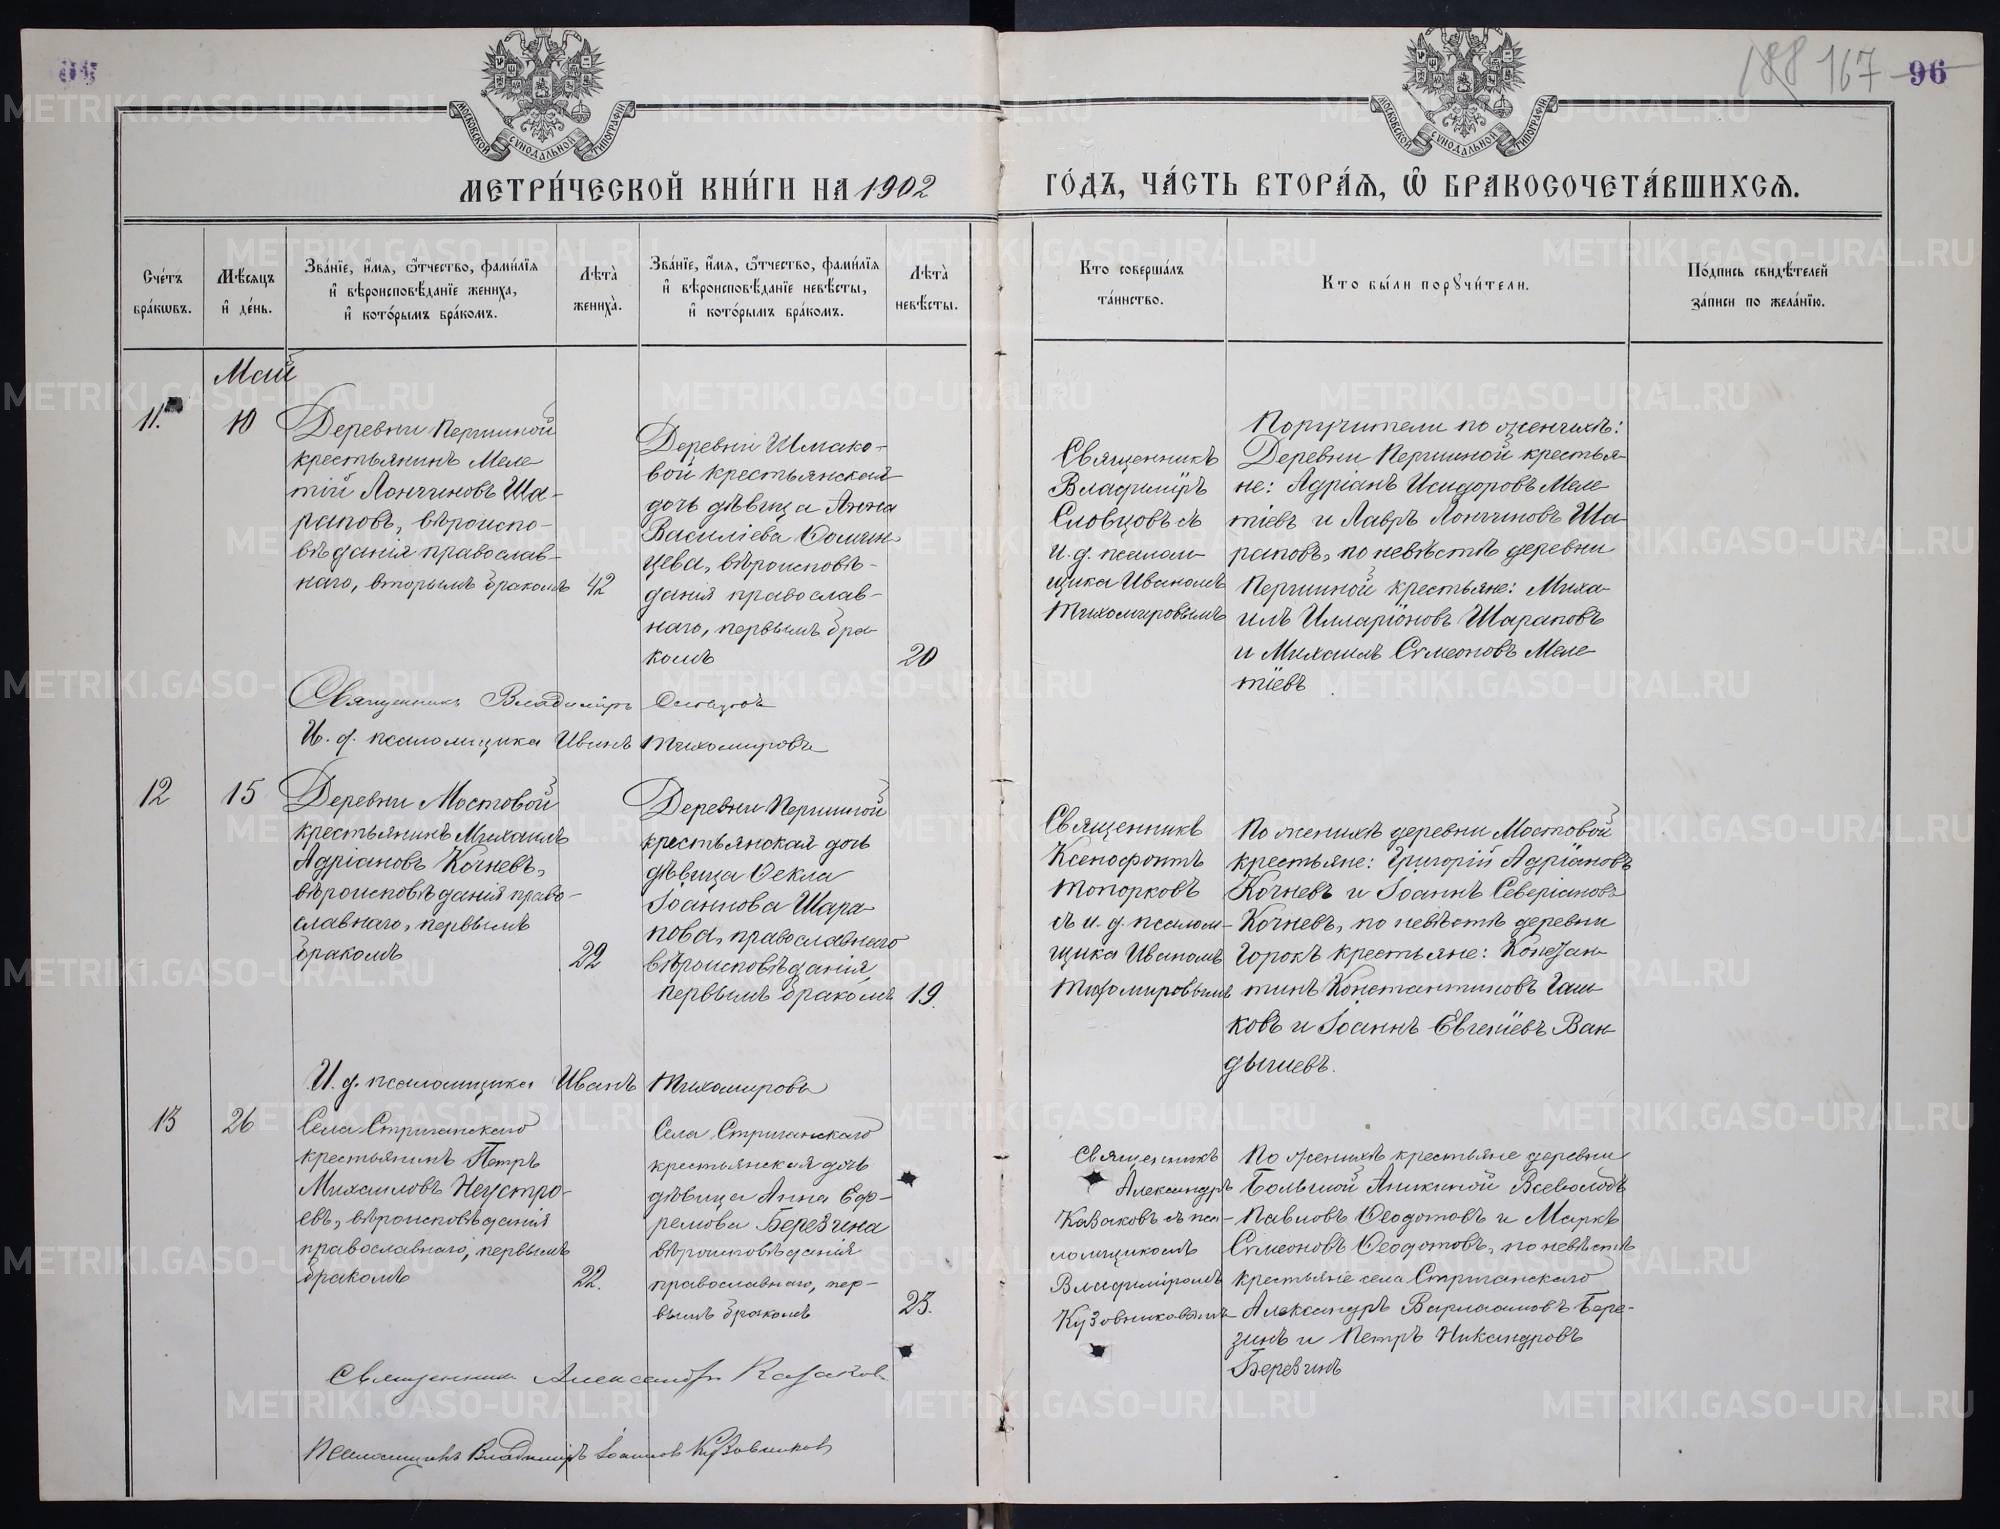 188 167 96
МОСКОВСКОЙ СѴНОДАЛЬНОЙ ТИПОГРАФІИ
МОСКОВСКОЙ СѴНОДАЛЬНОЙ ТИПОГРАФІИ
МЕТРИ́ЧЕСКОЙ КНИ́ГИ НА 1902
ГО́ДЪ, ЧА́СТЬ ВТОРА́Ѧ, Ѽ БРАКОСОЧЕТА́ВШИХСѦ.
Сче́тъ
бра́кѡвъ.
Мѣ́сѧцъ
и҆ де́нь.
Зва́нїе, и҆́мѧ, ѻ҆́тчество, фами́лїѧ
и҆ вѣроисповѣ́данїе жениха̀,
и҆ кото́рымъ бра́комъ.
Лѣ́та̀
жениха̀.
Зва́нїе, и҆́мѧ, ѻ҆́тчество, фами́лїѧ
и҆ вѣроисповѣ́данїе невѣ́сты,
и҆ кото́рымъ бра́комъ.
Лѣ́та̀
невѣ́сты.
Кто соверша́лъ
та́инство.
Кто бы́ли порꙋчи́тели.
По́дпись свидѣ́телей
за́писи по жела́нїю.
Май
11.
10
Деревни Першиной
крестьянинъ Меле
тій Лонгиновъ Ша-
раповъ, вѣроиспо-
вѣданія православ-
наго, вторымъ бракомъ
42
Деревни Шмако-
вой крестьянская
дочь дѣвица Анна
Василіева Ѳомин-
цева, вѣроисповѣ-
данія православ-
наго, первымъ бра-
комъ
20
Священникъ
Владиміръ
Словцовъ съ
и. д. псалом-
щика Иваномъ
Тихомировымъ
Поручители по женихѣ:
Деревни Першиной крестья-
не: Адріанъ Исидоровъ Меле
тіевъ и Лавръ Лонгиновъ Ша-
раповъ, по невѣстѣ деревни
Першиной крестьяне: Миха-
илъ Илларіоновъ Шараповъ
и Михаилъ Симеоновъ Меле
тіевъ
Священникъ Владиміръ Словцовъ
И. д. псаломщика Иванъ Тихомировъ
12
15
Деревни Мостовой
крестьянинъ Михаилъ
Адріановъ Кочневъ,
вѣроисповѣданія право-
славнаго, первымъ
бракомъ
22
Деревни Першиной
крестьянская дочь
дѣвица Ѳекла
Іоаннова Шара-
пова, православнаго
вѣроисповѣданія,
первымъ бракомъ
19.
Священникъ
Ксенофонтъ
Топорковъ
съ и. д. псалом-
щика Иваномъ
Тихомировымъ
По женихѣ деревни Мостовой
крестьяне: Григорій Адріановъ
Кочневъ и Іоаннъ Северіановъ
Кочневъ, по невѣстѣ деревни
Горокъ крестьяне: Констан-
тинъ Константиновъ Гаш-
ковъ и Іоаннъ Евгеніевъ Ван-
дышевъ.
И. д. псаломщика Иванъ Тихомировъ
13
26
Села Стриганскаго
крестьянинъ Петръ
Михаиловъ Неустро-
евъ, вѣроисповѣданія
православнаго, первымъ
бракомъ
22.
Села Стриганскаго
крестьянская дочь
дѣвица Анна Еф-
ремова Березина
вѣроисповѣданія
православнаго, пер-
вымъ бракомъ
23.
Священникъ
Александръ
Казаковъ съ пса-
ломщикомъ
Владиміромъ
Кузовниковымъ
По женихѣ крестьяне деревни
Большой Аникиной Всеволодъ
Павловъ Ѳеодотовъ и Маркъ
Симеоновъ Ѳеодотовъ, по невѣстѣ
крестьяне села Стриганскаго
Александръ Варлаамовъ Бере-
зинъ и Петръ Никандровъ
Березинъ
Священникъ Александръ Казаковъ
Псаломщикъ Владиміръ Іоанновъ Кузовниковъ
METRIKI.GASO-URAL.RU